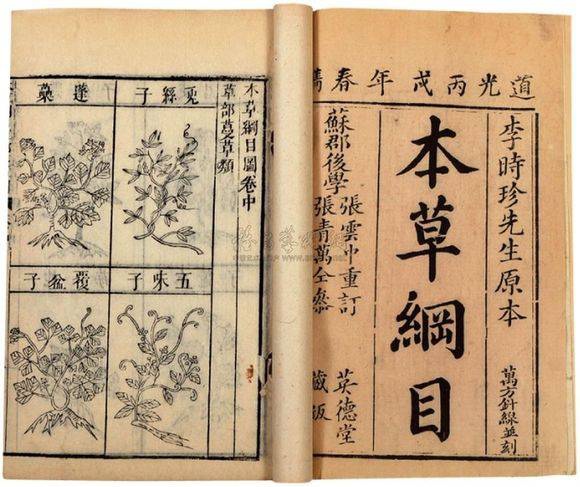 道光丙戌年春鐫
李時珍先生原本
本草綱目
萬方針線並刻
蘇郡後學
張雲中重訂
張青萬仝參
英德堂
藏板
本草綱目圖卷中
草部蔓草類
兎絲子
蓬蘽
五味子
覆盆子